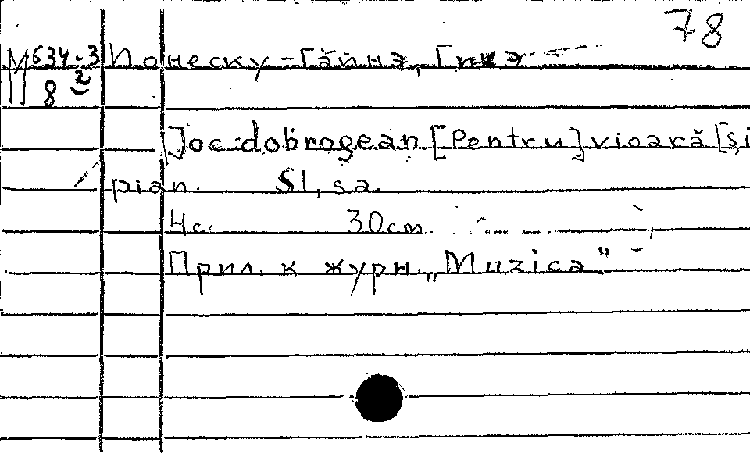 78
М 634-3 Йонеску-Гайнэ, Гикэ
8 2
Joc dobrogean [Pentru] vioară [şi
pian. Sl, s.a.
4c. 30cm.
Прил. к журн „Muzica"